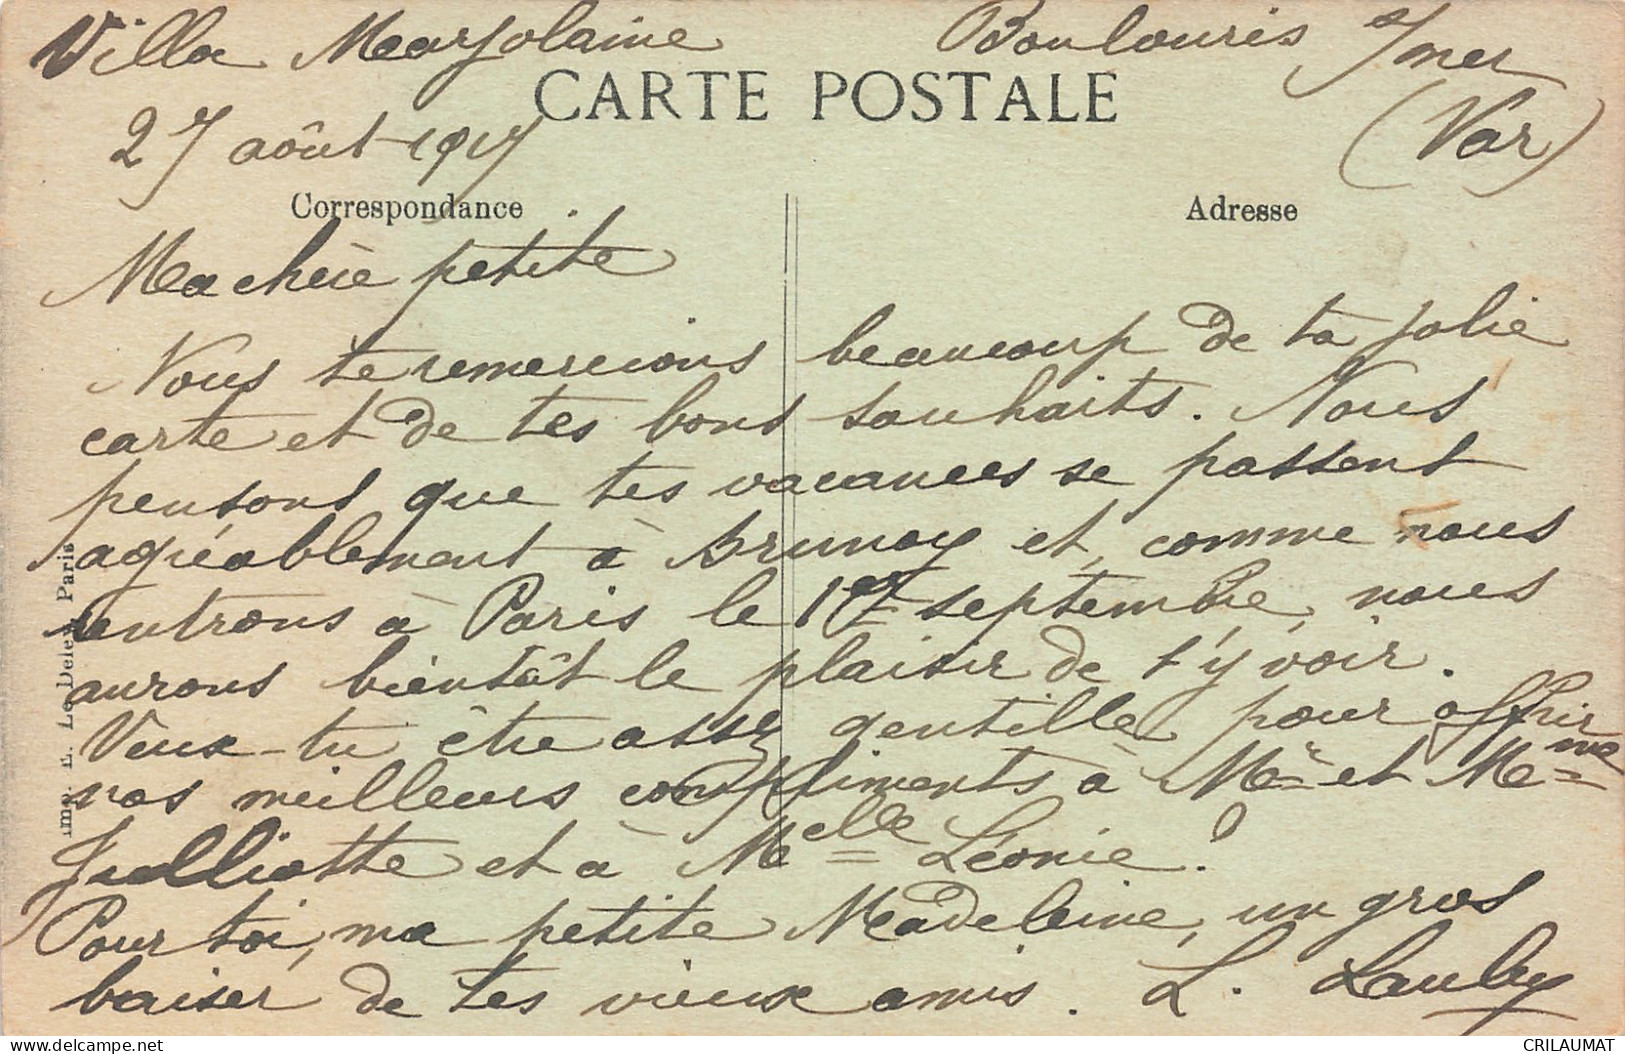 Villa Marjolaine Boulouris s/mer
CARTE POSTALE
27 août 1917 (Var)
Correspondance Adresse
Ma chère petite
Nous te remercions beaucoup de ta jolie
carte et de tes bons souhaits. Nous
pensons que tes vacances se passent
agréablement à Brunoy et, comme nous
rentrons à Paris le 1er septembre, nous
aurons bientôt le plaisir de t'y voir.
Veux-tu être assez gentille pour offrir
nos meilleurs compliments à Mr et Mme
Julliotte et à Melle Léonie ?
Pour toi, ma petite Madeleine, un gros
baiser de tes vieux amis. L. Lauby
Imp. E. Le Deley, Paris
CRILAUMAT
delcampe.net